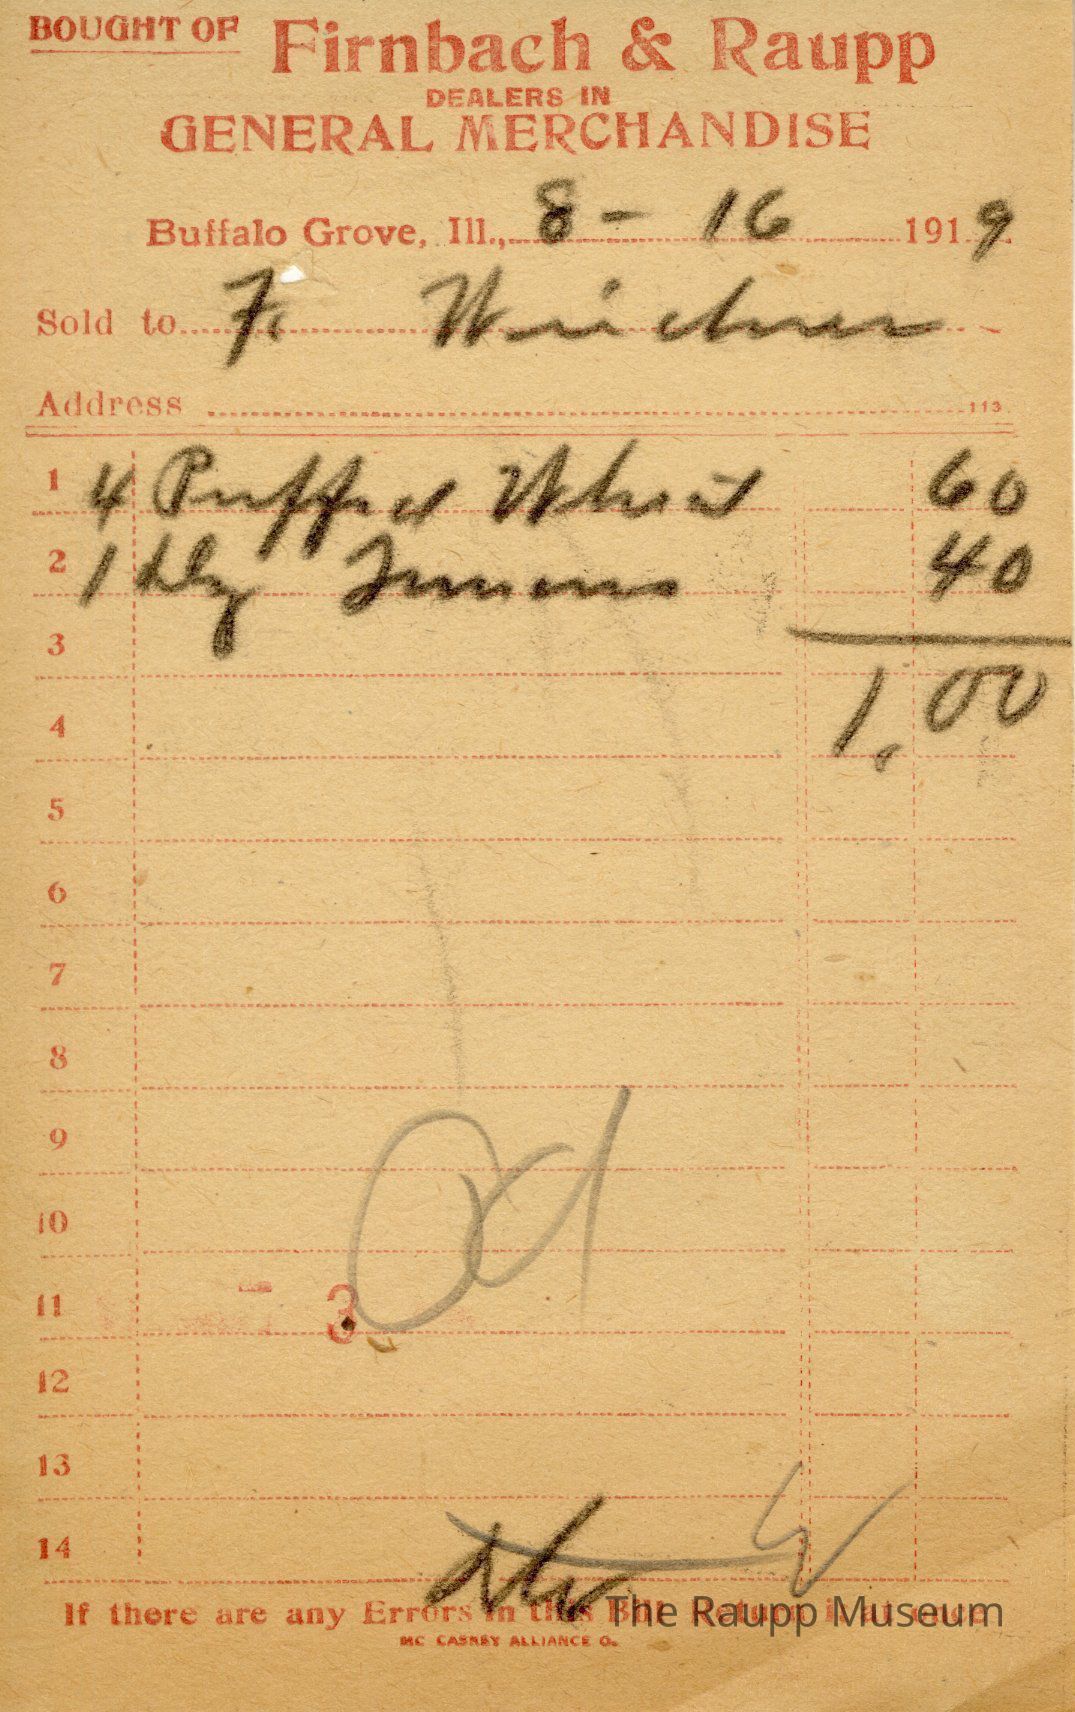 BOUGHT OF Firnbach & Raupp
DEALERS IN
GENERAL MERCHANDISE
Buffalo Grove, Ill., 8 - 16 1919
Sold to F. Weidner
Address 113
1 4 Puffed Wheat 60
2 1 Dz Lemons 40
3
4 1.00
5
6
7
8
9
10
11 3
12
13
14
If there are any Errors in this Bill Return it at once
MC CASKEY ALLIANCE O.
The Raupp Museum